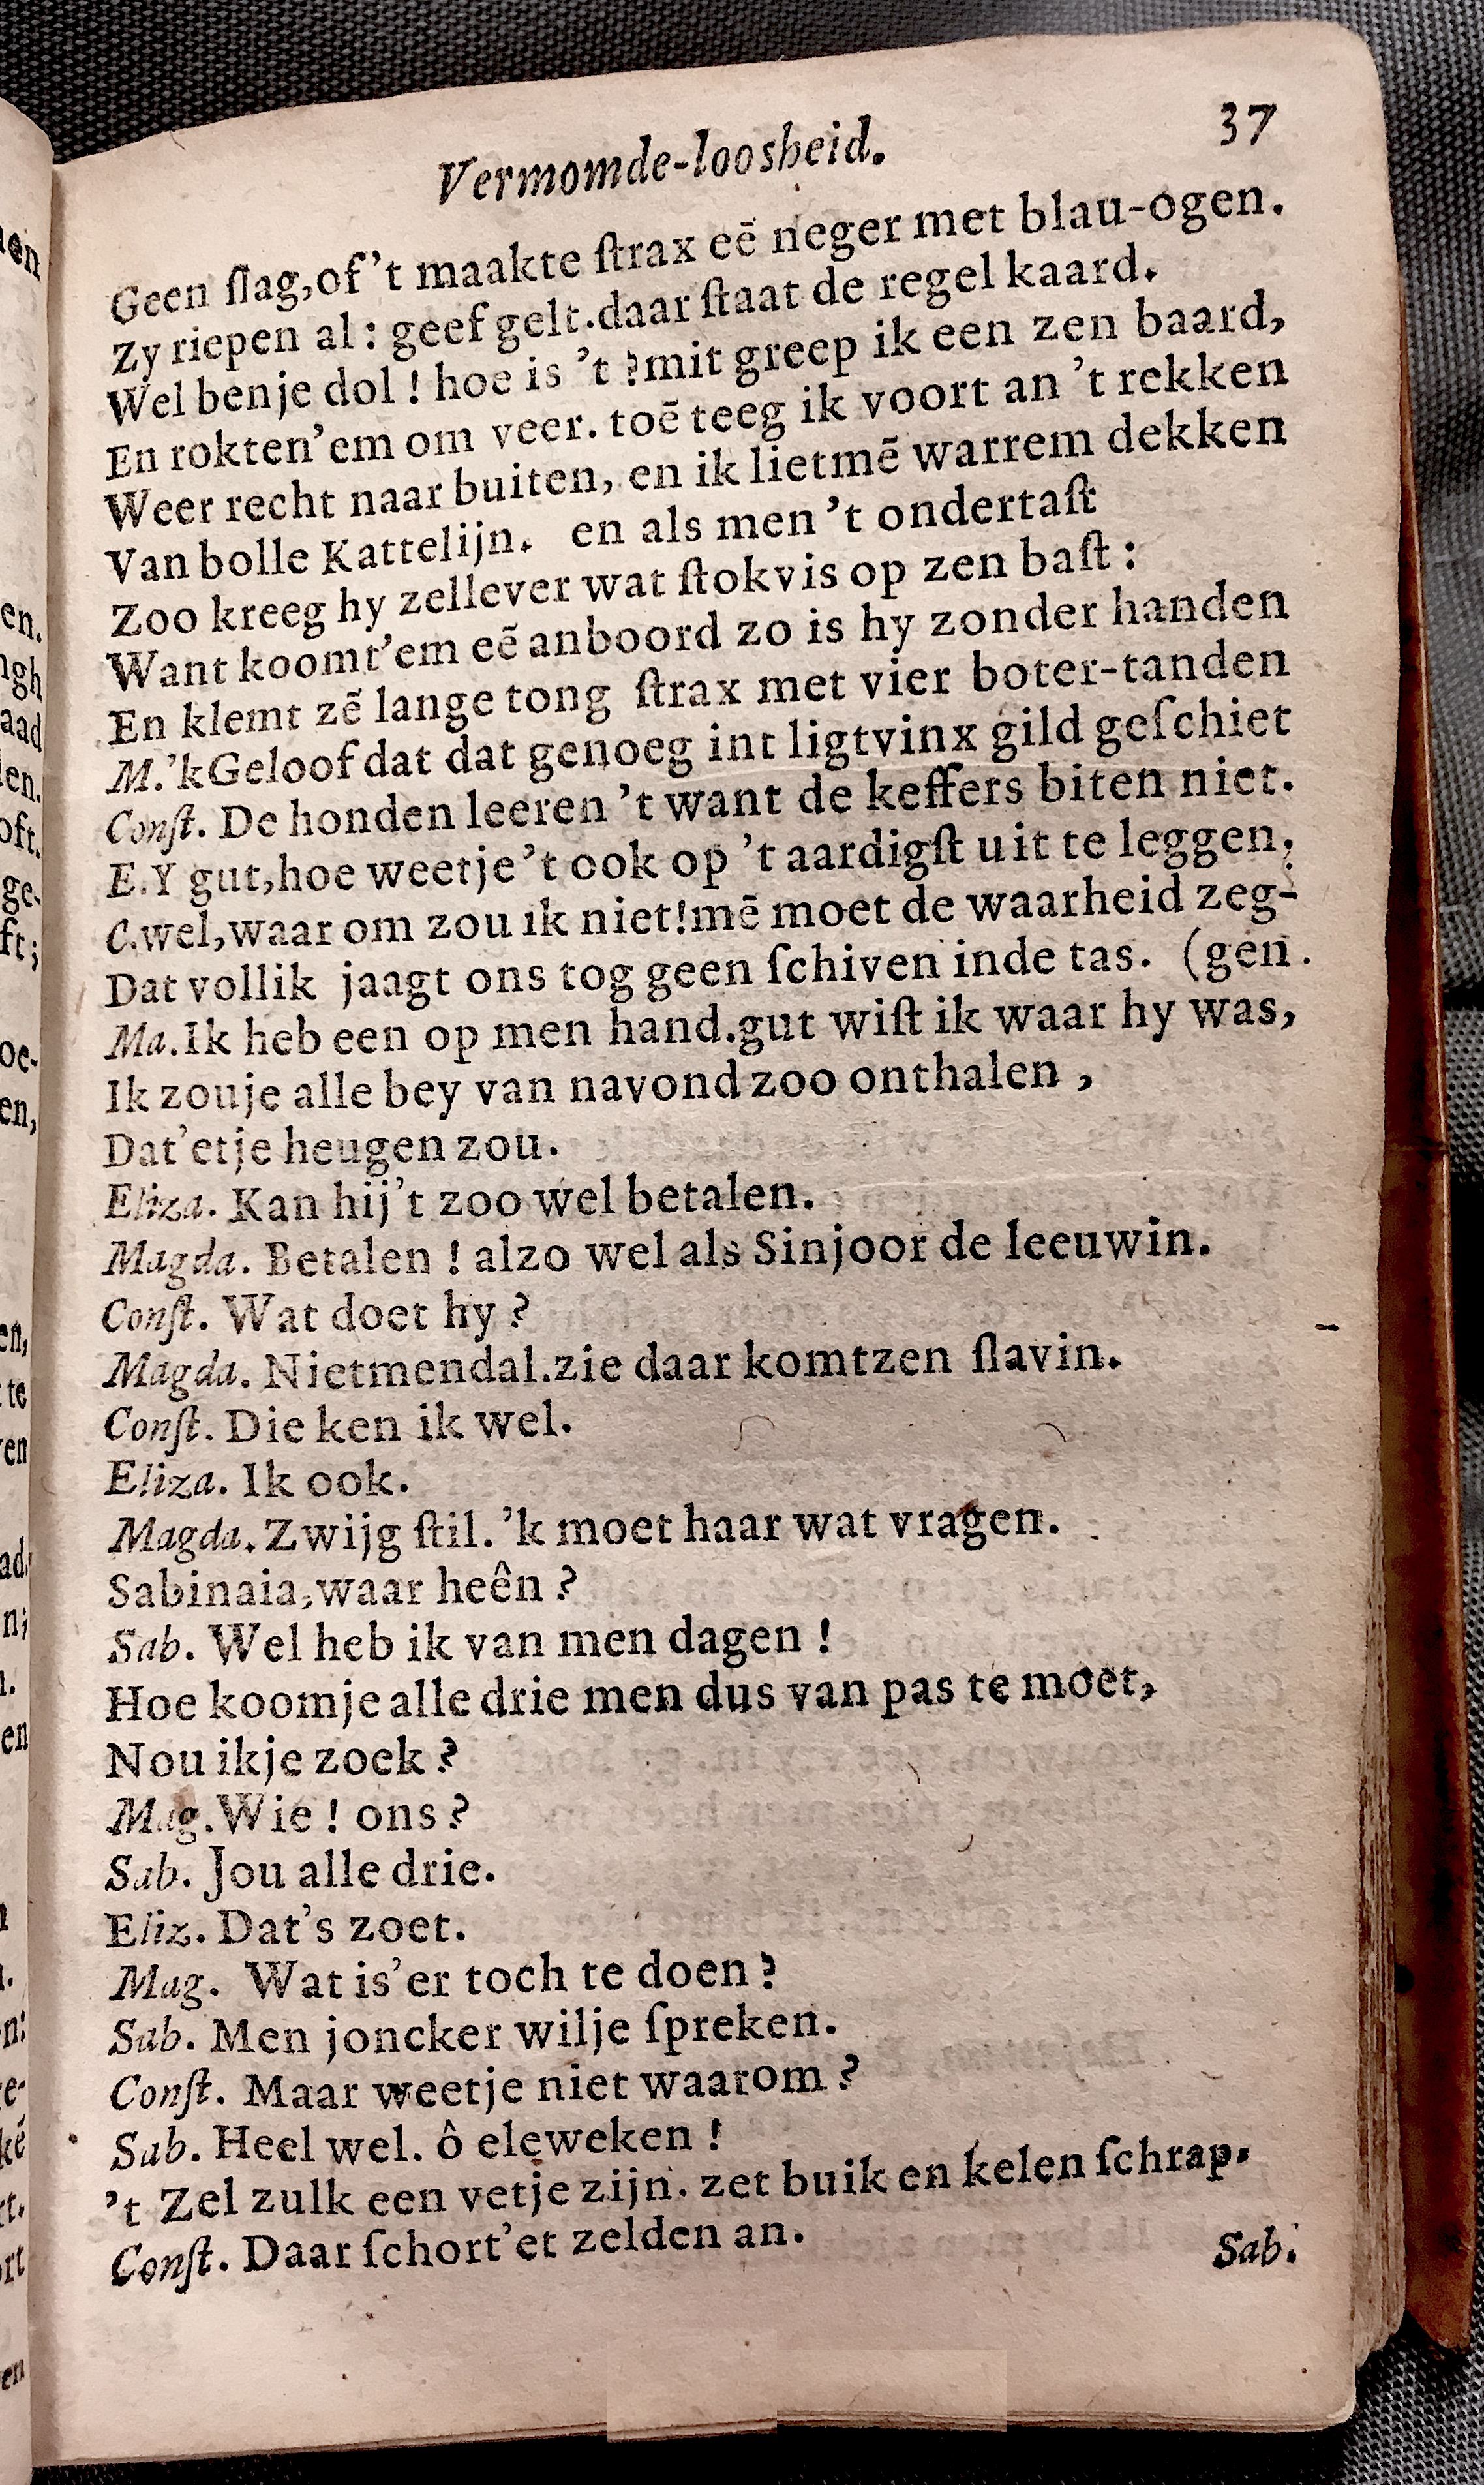 Vermomde-loosheid. 37
Geen ſlag,of 't maakte ſtrax eē neger met blau-ogen.
Zy riepen al : geef gelt.daar ſtaat de regel kaard.
Wel benje dol ! hoe is 't ?mit greep ik een zen baard,
En rokten'em om veer. toē teeg ik voort an 't rekken
Weer recht naar buiten, en ik lietmē warrem dekken
Van bolle Kattelijn. en als men 't ondertaſt
Zoo kreeg hy zellever wat ſtokvis op zen baſt :
Want koomt'em eē anboord zo is hy zonder handen
En klemt zē lange tong ſtrax met vier boter-tanden
M.'kGeloof dat dat genoeg int ligtvinx gild geſchiet
Conſt. De honden leeren 't want de keffers biten niet.
E.Y gut,hoe weetje 't ook op 't aardigſt uit te leggen,
C.wel,waar om zou ik niet!mē moet de waarheid zeg-
Dat vollik jaagt ons tog geen ſchiven inde tas. (gen.
Ma.Ik heb een op men hand.gut wiſt ik waar hy was,
Ik zouje alle bey van navond zoo onthalen ,
Dat'etje heugen zou.
Eliza. Kan hij't zoo wel betalen.
Magda. Betalen ! alzo wel als Sinjoor de leeuwin.
Conſt. Wat doet hy ?
Magda. Nietmendal.zie daar komtzen ſlavin.
Conſt. Die ken ik wel.
Eliza. Ik ook.
Magda. Zwijg ſtil. 'k moet haar wat vragen.
Sabinaia,waar heên ?
Sab. Wel heb ik van men dagen !
Hoe koomje alle drie men dus van pas te moet,
Nou ikje zoek ?
Mag.Wie ! ons ?
Sab. Jou alle drie.
Eliz. Dat's zoet.
Mag. Wat is'er toch te doen ?
Sab. Men joncker wilje ſpreken.
Conſt. Maar weetje niet waarom ?
Sab. Heel wel. ô eleweken !
't Zel zulk een vetje zijn. zet buik en kelen ſchrap.
Conſt. Daar ſchort'et zelden an.
Sab.